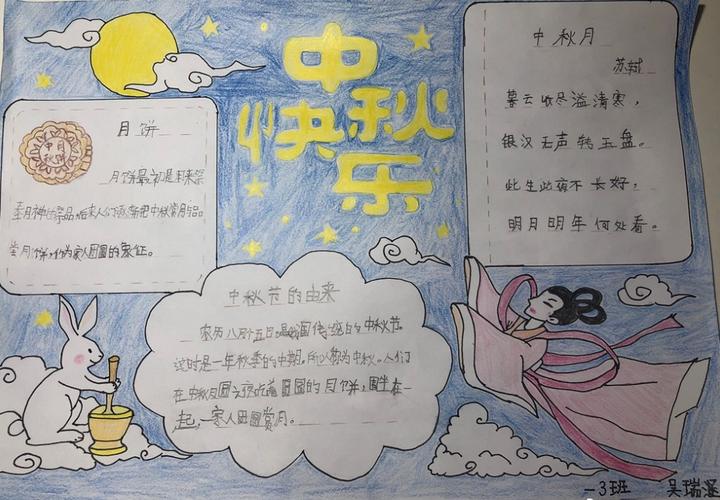 中秋
快乐
月饼
中月
秋饼
月饼最初是用来祭
奉月神的祭品,后来人们逐渐把中秋赏月与品
尝月饼,作为家人团圆的象征。
中秋月
苏轼
暮云收尽溢清寒,
银汉无声转玉盘。
此生此夜不长好,
明月明年何处看。
中秋节的由来
农历八月十五日是我国传统的中秋节。
这时是一年秋季的中期,所以称为中秋。人们
在中秋月圆之夜吃着圆圆的月饼,围坐在一
起,一家人团圆赏月。
一3班 吴瑞